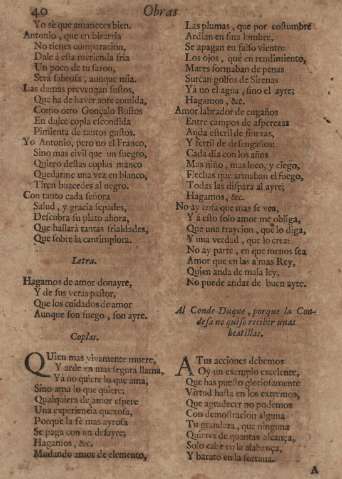 40 Obras
Yo sè que amaneces bien.
Antonio, que en bizarria
No tienes comparacion,
Dale à esta merienda fria
Un poco de tu sazon,
Serà sabrosa, aunque mia.
Las damas prevengan sustos,
Que ha de haver ante comida,
Como otro Gonçalo Bustos
En dulce copla escondida
Pimienta de tantos gustos.
Yo Antonio, pero no el Franco,
Sino mas civil que un fuego,
Quiero destas coplas manco
Quedarme una vez en blanco,
Tiren bucetades al negro.
Con tanto cada señora
Salud, y gracia sepades,
Descubra su plato ahora,
Que hallarà tantas frialdades,
Que sobre la cantimplora.
Letra.
Hagamos de amor donayre,
Y de sus veras pastor,
Que los cuidados de amor
Aunque son fuego, son ayre.
Coplas.
QUien mas vivamente muere,
Y arde en mas segura llama,
Ya no quiere lo que ama,
Sino ama lo que quiere:
Qualquiera de amor espere
Una experiencia quexosa,
Porque la fè mas ayrosa
Se paga con un desayre;
Hagamos, &c.
Mudando amor de elemento,
Las plumas, que por costumbre
Ardian en sua lumbre,
Se apagan en falso viento:
Los ojos, que en rendimiento,
Mares formaban de penas
Surcan golfos de Sirenas
Yà no el agua, sino el ayre;
Hagamos, &c.
Amor labrador de engaños
Entre campos de asperezas
Anda esteril de finezas,
Y fertil de desengaños:
Cada dia con los años
Mas niño, mas loco, y ciego,
Flechas que armaban el fuego,
Todas las dispara al ayre;
Hagamos, &c.
No ay cosa que mas se vea,
Y à esso solo amor me obliga,
Que una traycion, que lo diga,
Y una verdad, que lo crea:
No ay parte, en que menos sea
Amor que en las à mas Rey,
Quien anda de mala ley,
No puede andar de buen ayre.
Al Conde-Duque, porque la Condesa
no quiso recibir unas
beatillas.
A Tus acciones debemos
Oy un exemplo excelente,
Que has puesto gloriosamente
Virtud hasta en los extremos,
Que agradecer no podemos
Con demostracion alguna
Tu grandeza, que ninguna
Quieres de quantas alcança,
Solo cabe en la alabança,
Y barato en la fortuna.
A